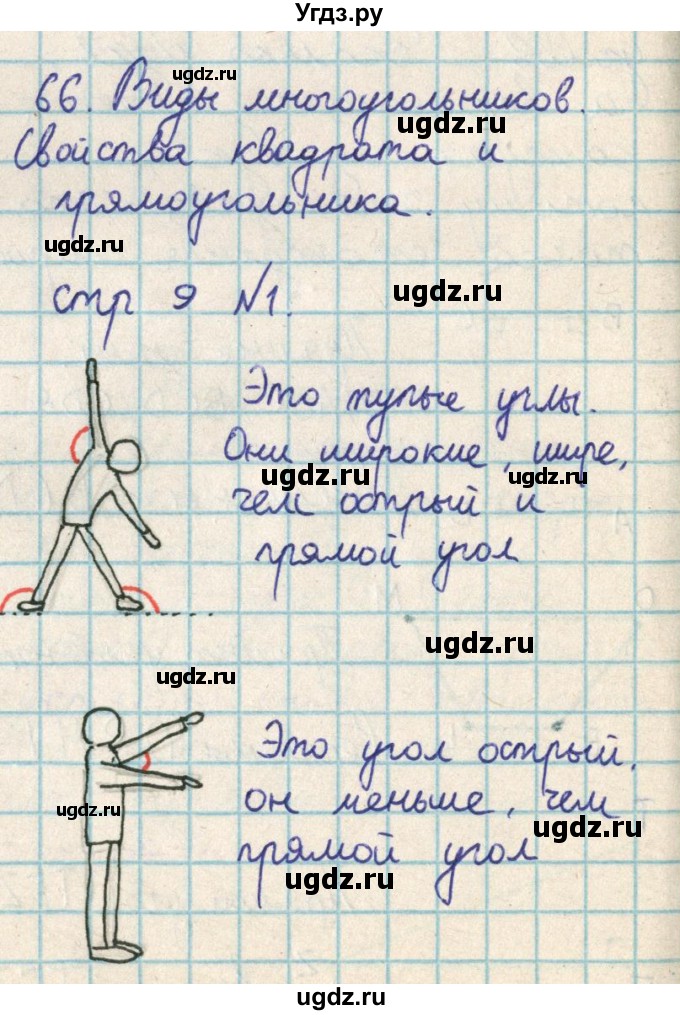 Угдз.ру
66. Виды многоугольников.
Свойства квадрата и
прямоугольника.
стр 9 №1.
Это тупые углы.
Они широкие, шире,
чем острый и
прямой угол
Это угол острый.
он меньше, чем
прямой угол
ugdz.ru
ugdz.ru
ugdz.ru
ugdz.ru
ugdz.ru
ugdz.ru
ugdz.ru
ugdz.ru
ugdz.ru
ugdz.ru
ugdz.ru
ugdz.ru